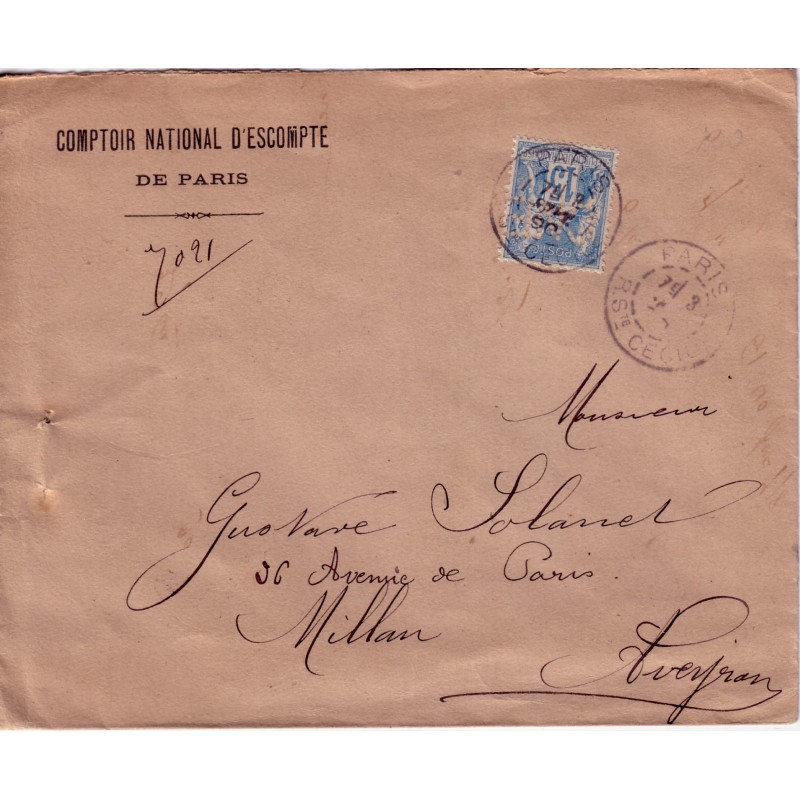 COMPTOIR NATIONAL D'ESCOMPTE
DE PARIS
7091
15
PARIS
PARIS
R Ste CECILE
Monsieur
Gustave Solanet
36 Avenue de Paris.
Millau
Aveyron